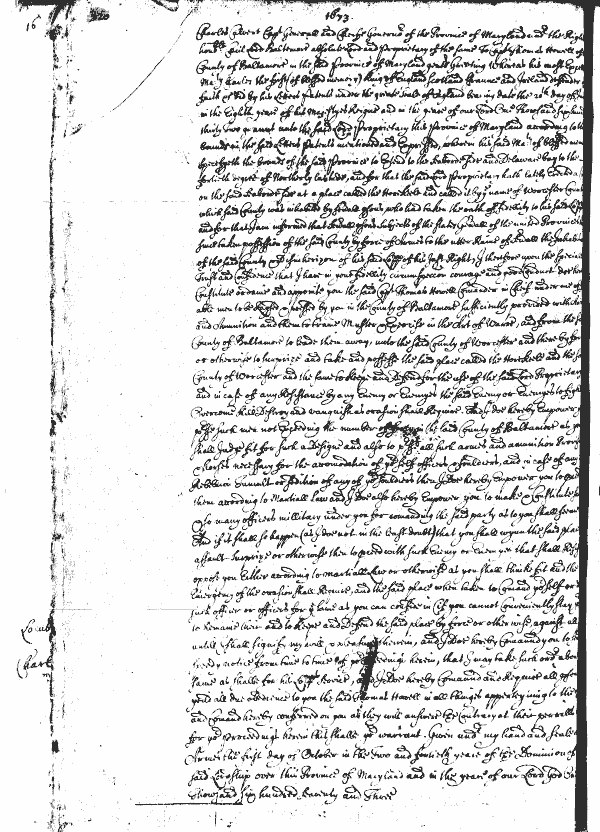 16
1673.
Charles Calvert Capt Generall and Cheife Governor of the Province of Maryland and the Right
hon: Cecil Lord Baltemore absolute Lord and Proprietary of the same To Capt Thomas Howell of
County of Baltemore in the said Province of Maryland gent Greeting Whereas his most
Maty Charles the first (of blessed memory) King of England Scotland France and Ireland defender
faith &c by his Letters Patents under the great Seale of England bearing date the day of
in the Eighth yeare of his Majestyes Reigne and in the yeare of our Lord One Thousand six hundred
thirty two grant unto the said Lord Proprietary this Province of Maryland according to the
bounds in the said Letters Patents mentioned and Expressed, wherein his said Maty of blessed
the bounds of the said Province to Extend to the and Delaware bay to the
fortieth degree of Northerly latitude, and for that the said Lord Proprietary hath lately
on the said at a place called the Horekeele and called it by ye name of Worcester County
which said County was inhabited by severall psons who had taken the oath of fidelity to his said Lopp
and for that I am informed that severall psons subjects of the States Generall of the united Provinces
have taken possession of the said County by force of Armes to the utter Ruine of severall the Inhabitants
of the said County and of his said Lopps of his Just Right, I therefore upon the speciall
trust and confidence that I have in your fidelity circumspeccon courage and good conduct doe hereby
Constitute ordaine and appointe you the said Capt Thomas Howell Comander in Cheif under me of
able men to be raised by you in the County of Baltemore sufficiently provided with
and Ammunition and them to traine Muster & Exercise in the Art of Warr, and from the said
County of Baltemore to leade them away, unto the said County of Worcester and there by
or otherwise to surprize and take and possesse the said place called the Horekeele and the said
County of Worcester and the same to keepe and Defend for the use of the said Lord Proprietary
and in case of any Resistance by any Enemy or Enemyes the said Enemy or Enemyes to fight
overcome kill destroy and vanquish as occasion shall Require. And I doe hereby Empower you
presse such men not Exceeding the number of in the said County of Baltemore as you
shall Judge fit for such a designe and also to presse all such armes and amunition
necessary for the accomodation of yor selfe officers & soldiers, and in case of any
Rebellion Tumult or sedition of any of yor soldiers then I doe hereby Empower you to
them according to Martiall Law and I doe also hereby Empower you to make & Constitute
so many officers millitary under you for comanding the said party as to you shall seeme
And if it shall so happen (as I doe not in the least doubt) that you shall upon the said place
assault surprize or otherwise then to proceed with such Enemy or Enemyes that shall
oppose you Either according to martiall Law or otherwise as you shall thinke fit and the
Emergency of the occasion shall Require, and the said place when taken to Comand yor selfe or
such officer or officers for ye time as you can confide in (if you cannot Conveniently stay
to remaine there and to keepe and defend the said place by force or otherwise against all
untill I shall signify my will & pleasure therein, and I doe hereby Comand you to
speedy notice from time to time of yor proceedings herein, that I may take such order about
same as shalbe for his Lopps service, and I doe hereby Comand and Require all
yeild all due obedience to you the said Thomas Howell in all things apperteyning to the
and Comand hereby conferred on you as they will answer the Contrary at their peril
for yor proceedings herein this shalbe yor warrant. Given under my hand and Seale
Armes the first day of October in the two and fortieth yeare of the Dominion of
said Lordship over this Province of Maryland and in the yeare of our Lord God One
thousand six hundred seventy and Three